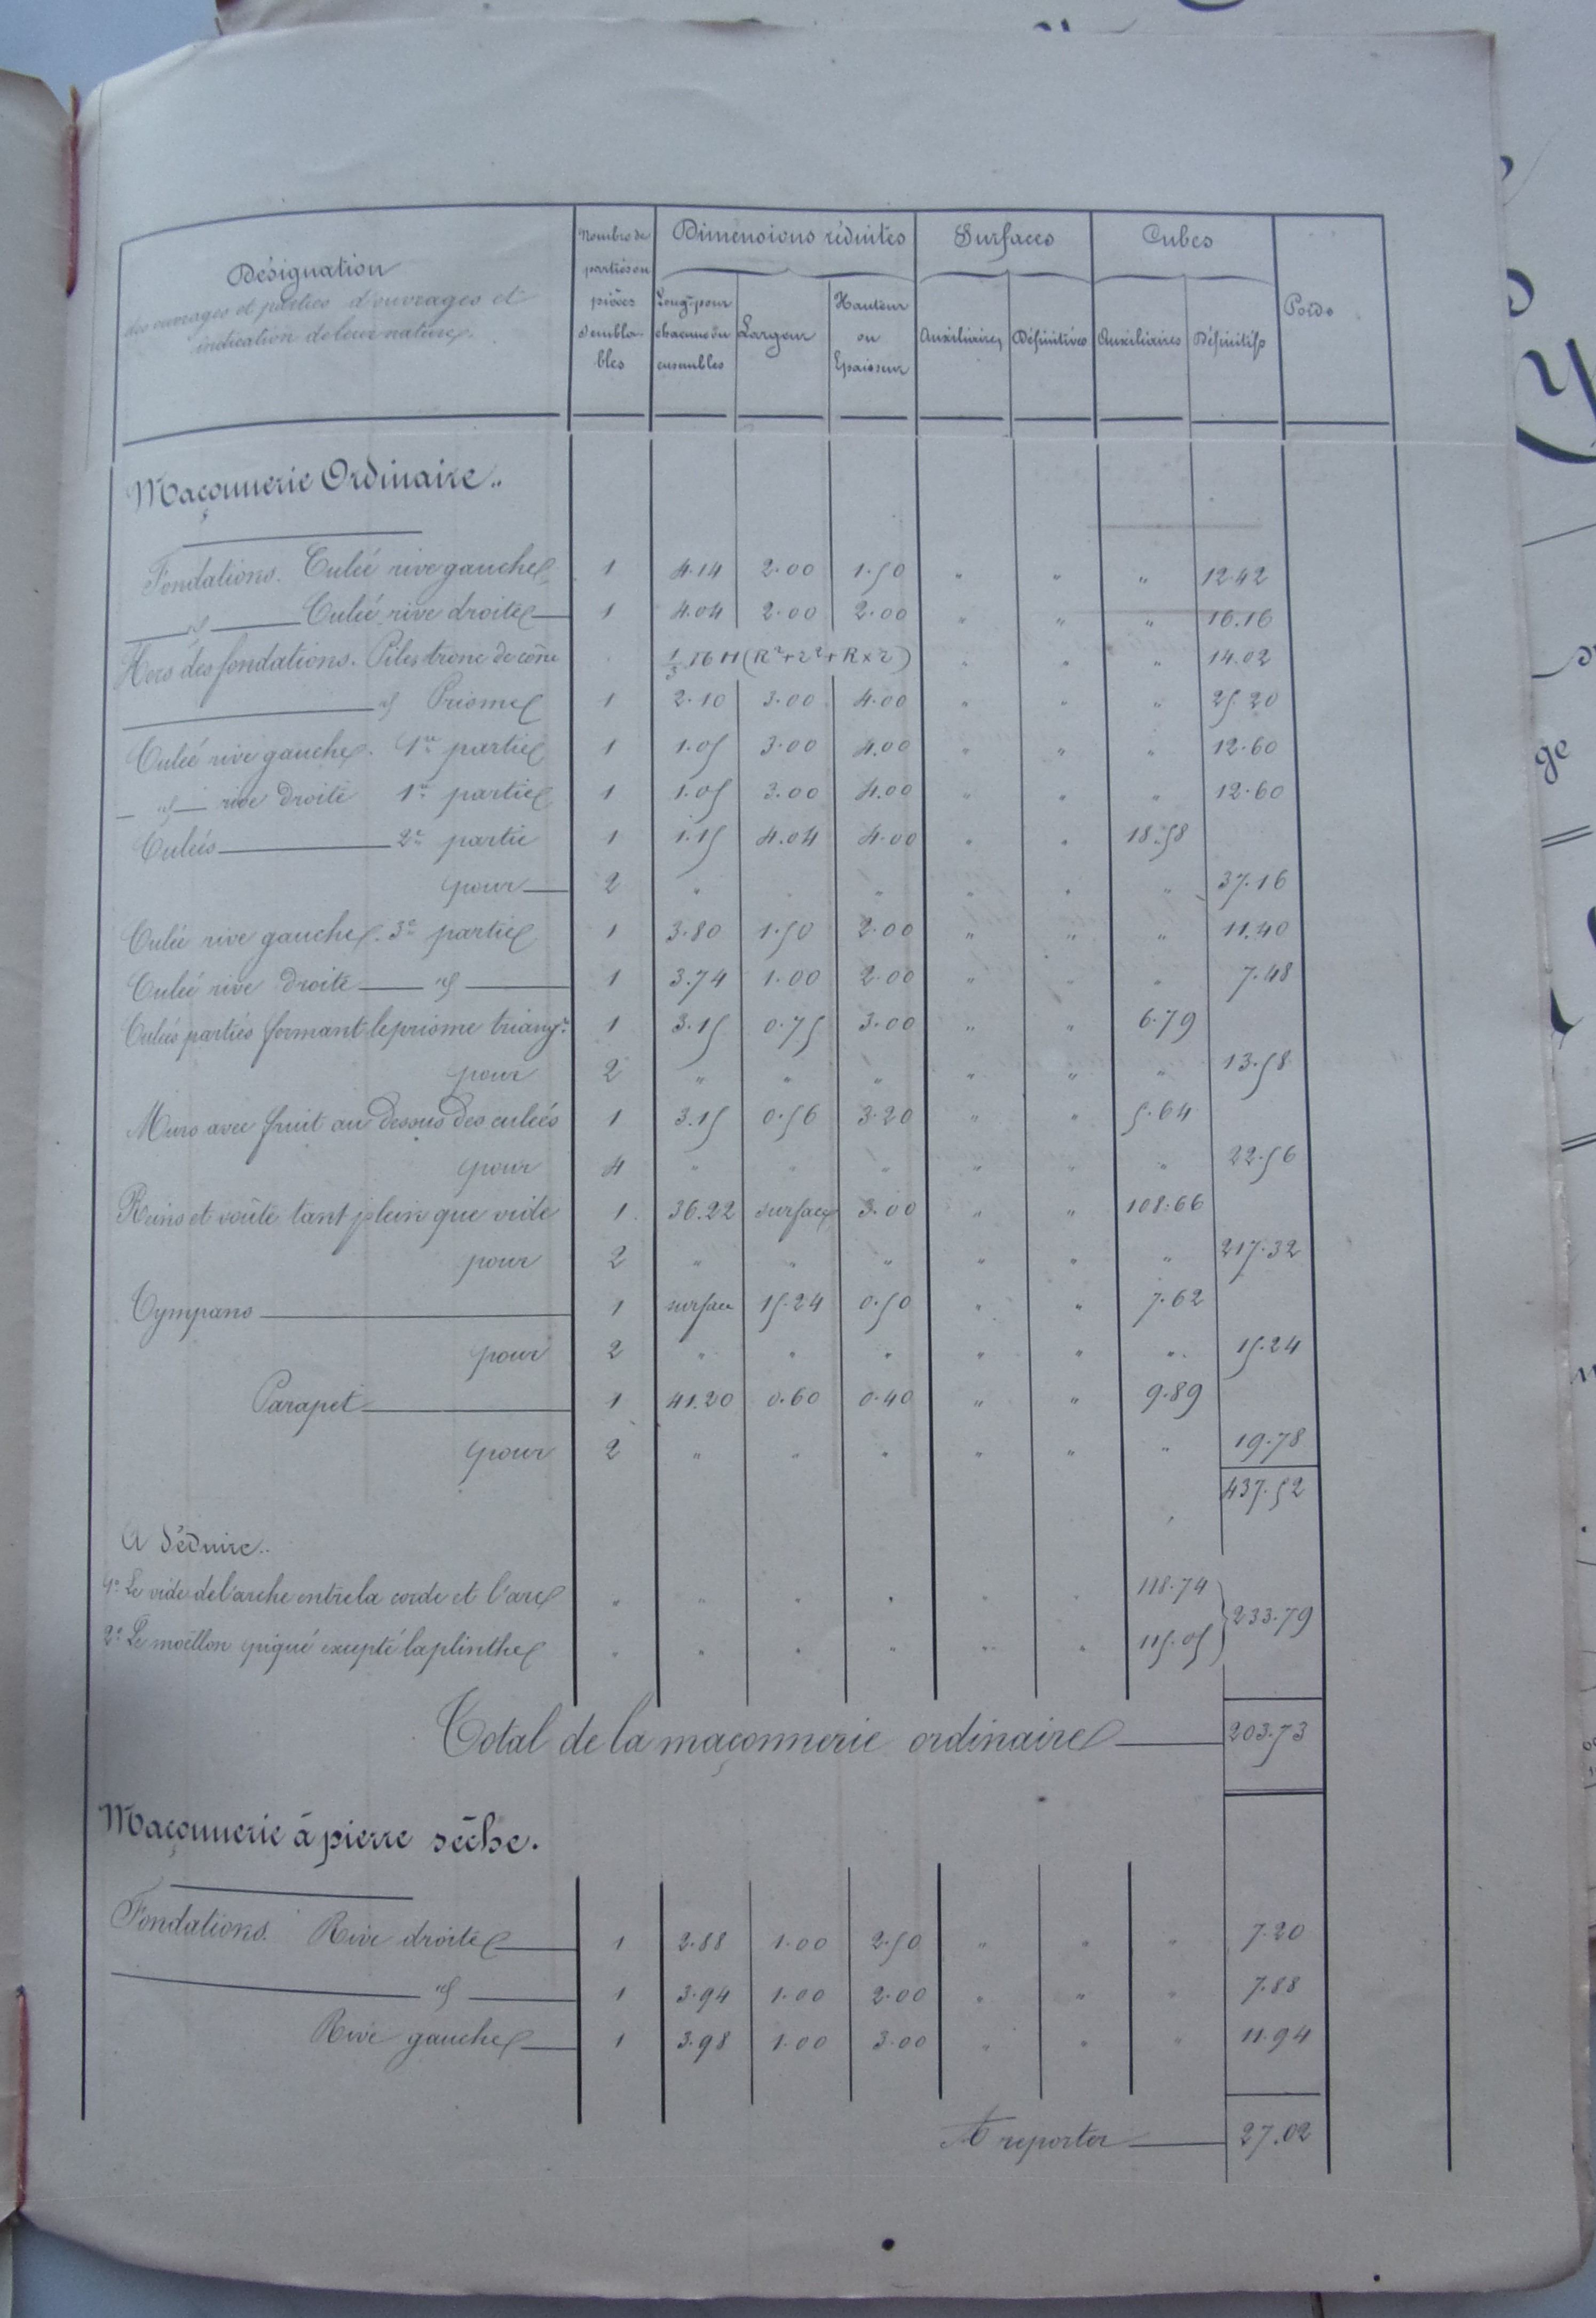 Désignation
des ouvrages et parties d'ouvrages et
indication de leur nature.
Nombre de
parties ou
pièces
sembla-
bles
Dimensions réduites
Long.r pour
chacune ou
ensembles
Largeur
Hauteur
ou
Epaisseur
Surfaces
Auxiliaires
Définitives
Cubes
Auxiliaires
Définitifs
Poids
Maçonnerie Ordinaire..
Fondations. Culée rive gauche 1 4.14 2.00 1.50 " " " 12.42
id Culée rive droite 1 4.04 2.00 2.00 " " " 16.16
Hors des fondations. Piles tronc de cône 1/3 π H (R²+r²+R×r) " " " 14.02
id Prisme 1 2.10 3.00 4.00 " " " 25.20
Culée rive gauche. 1re partie 1 1.05 3.00 4.00 " " " 12.60
id rive droite 1re partie 1 1.05 3.00 4.00 " " " 12.60
Culées 2e partie 1 1.15 4.04 4.00 " " 18.58
pour 2 " " " " " " 37.16
Culée rive gauche. 3e partie 1 3.80 1.50 2.00 " " " 11.40
Culée rive droite id 1 3.74 1.00 2.00 " " " 7.48
Culées parties formant le prisme triang.re 1 3.15 0.75 3.00 " " 6.79
pour 2 " " " " " " 13.58
Murs avec fruit au dessus des culées 1 3.15 0.56 3.20 " " 5.64
pour 4 " " " " " " 22.56
Reins et voûte tant plein que vide 1. 36.22 surface 3.00 " " 108.66
pour 2 " " " " " " 217.32
Tympans 1 surface 15.24 0.50 " " 7.62
pour 2 " " " " " " 15.24
Parapet 1 41.20 0.60 0.40 " " 9.89
pour 2 " " " " " " 19.78
437.52
A déduire..
1° Le vide de l'arche entre la corde et l'arc " " " " " " 118.74
233.79
2° Le moëllon piqué excepté la plinthe " " " " " " 115.05
Total de la maçonnerie ordinaire 203.73
Maçonnerie à pierre sèche.
Fondations. Rive droite 1 2.88 1.00 2.50 " " " 7.20
id 1 3.94 1.00 2.00 " " " 7.88
Rive gauche 1 3.98 1.00 3.00 " " " 11.94
A reporter 27.02